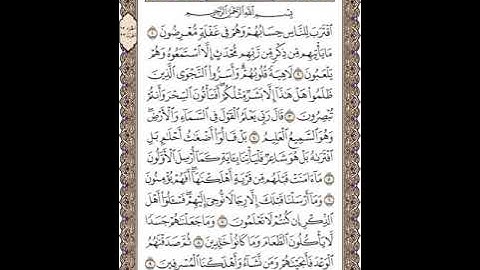 بِسْمِ اللَّهِ الرَّحْمَٰنِ الرَّحِيمِ
اقْتَرَبَ لِلنَّاسِ حِسَابُهُمْ وَهُمْ فِي غَفْلَةٍ مُّعْرِضُونَ ١
مَا يَأْتِيهِم مِّن ذِكْرٍ مِّن رَّبِّهِم مُّحْدَثٍ إِلَّا اسْتَمَعُوهُ وَهُمْ
يَلْعَبُونَ ٢ لَاهِيَةً قُلُوبُهُمْ وَأَسَرُّوا النَّجْوَى الَّذِينَ
ظَلَمُوا هَلْ هَٰذَا إِلَّا بَشَرٌ مِّثْلُكُمْ أَفَتَأْتُونَ السِّحْرَ وَأَنتُمْ
تُبْصِرُونَ ٣ قَالَ رَبِّي يَعْلَمُ الْقَوْلَ فِي السَّمَاءِ وَالْأَرْضِ
وَهُوَ السَّمِيعُ الْعَلِيمُ ٤ بَلْ قَالُوا أَضْغَاثُ أَحْلَامٍ بَلِ
افْتَرَاهُ بَلْ هُوَ شَاعِرٌ فَلْيَأْتِنَا بِآيَةٍ كَمَا أُرْسِلَ الْأَوَّلُونَ
٥ مَا آمَنَتْ قَبْلَهُم مِّن قَرْيَةٍ أَهْلَكْنَاهَا أَفَهُمْ يُؤْمِنُونَ
٦ وَمَا أَرْسَلْنَا قَبْلَكَ إِلَّا رِجَالًا نُّوحِي إِلَيْهِمْ فَسْـَٔلُوا أَهْلَ
الذِّكْرِ إِن كُنتُمْ لَا تَعْلَمُونَ ٧ وَمَا جَعَلْنَاهُمْ جَسَدًا
لَّا يَأْكُلُونَ الطَّعَامَ وَمَا كَانُوا خَالِدِينَ ٨ ثُمَّ صَدَقْنَاهُمُ
الْوَعْدَ فَأَنجَيْنَاهُمْ وَمَن نَّشَاءُ وَأَهْلَكْنَا الْمُسْرِفِينَ ٩